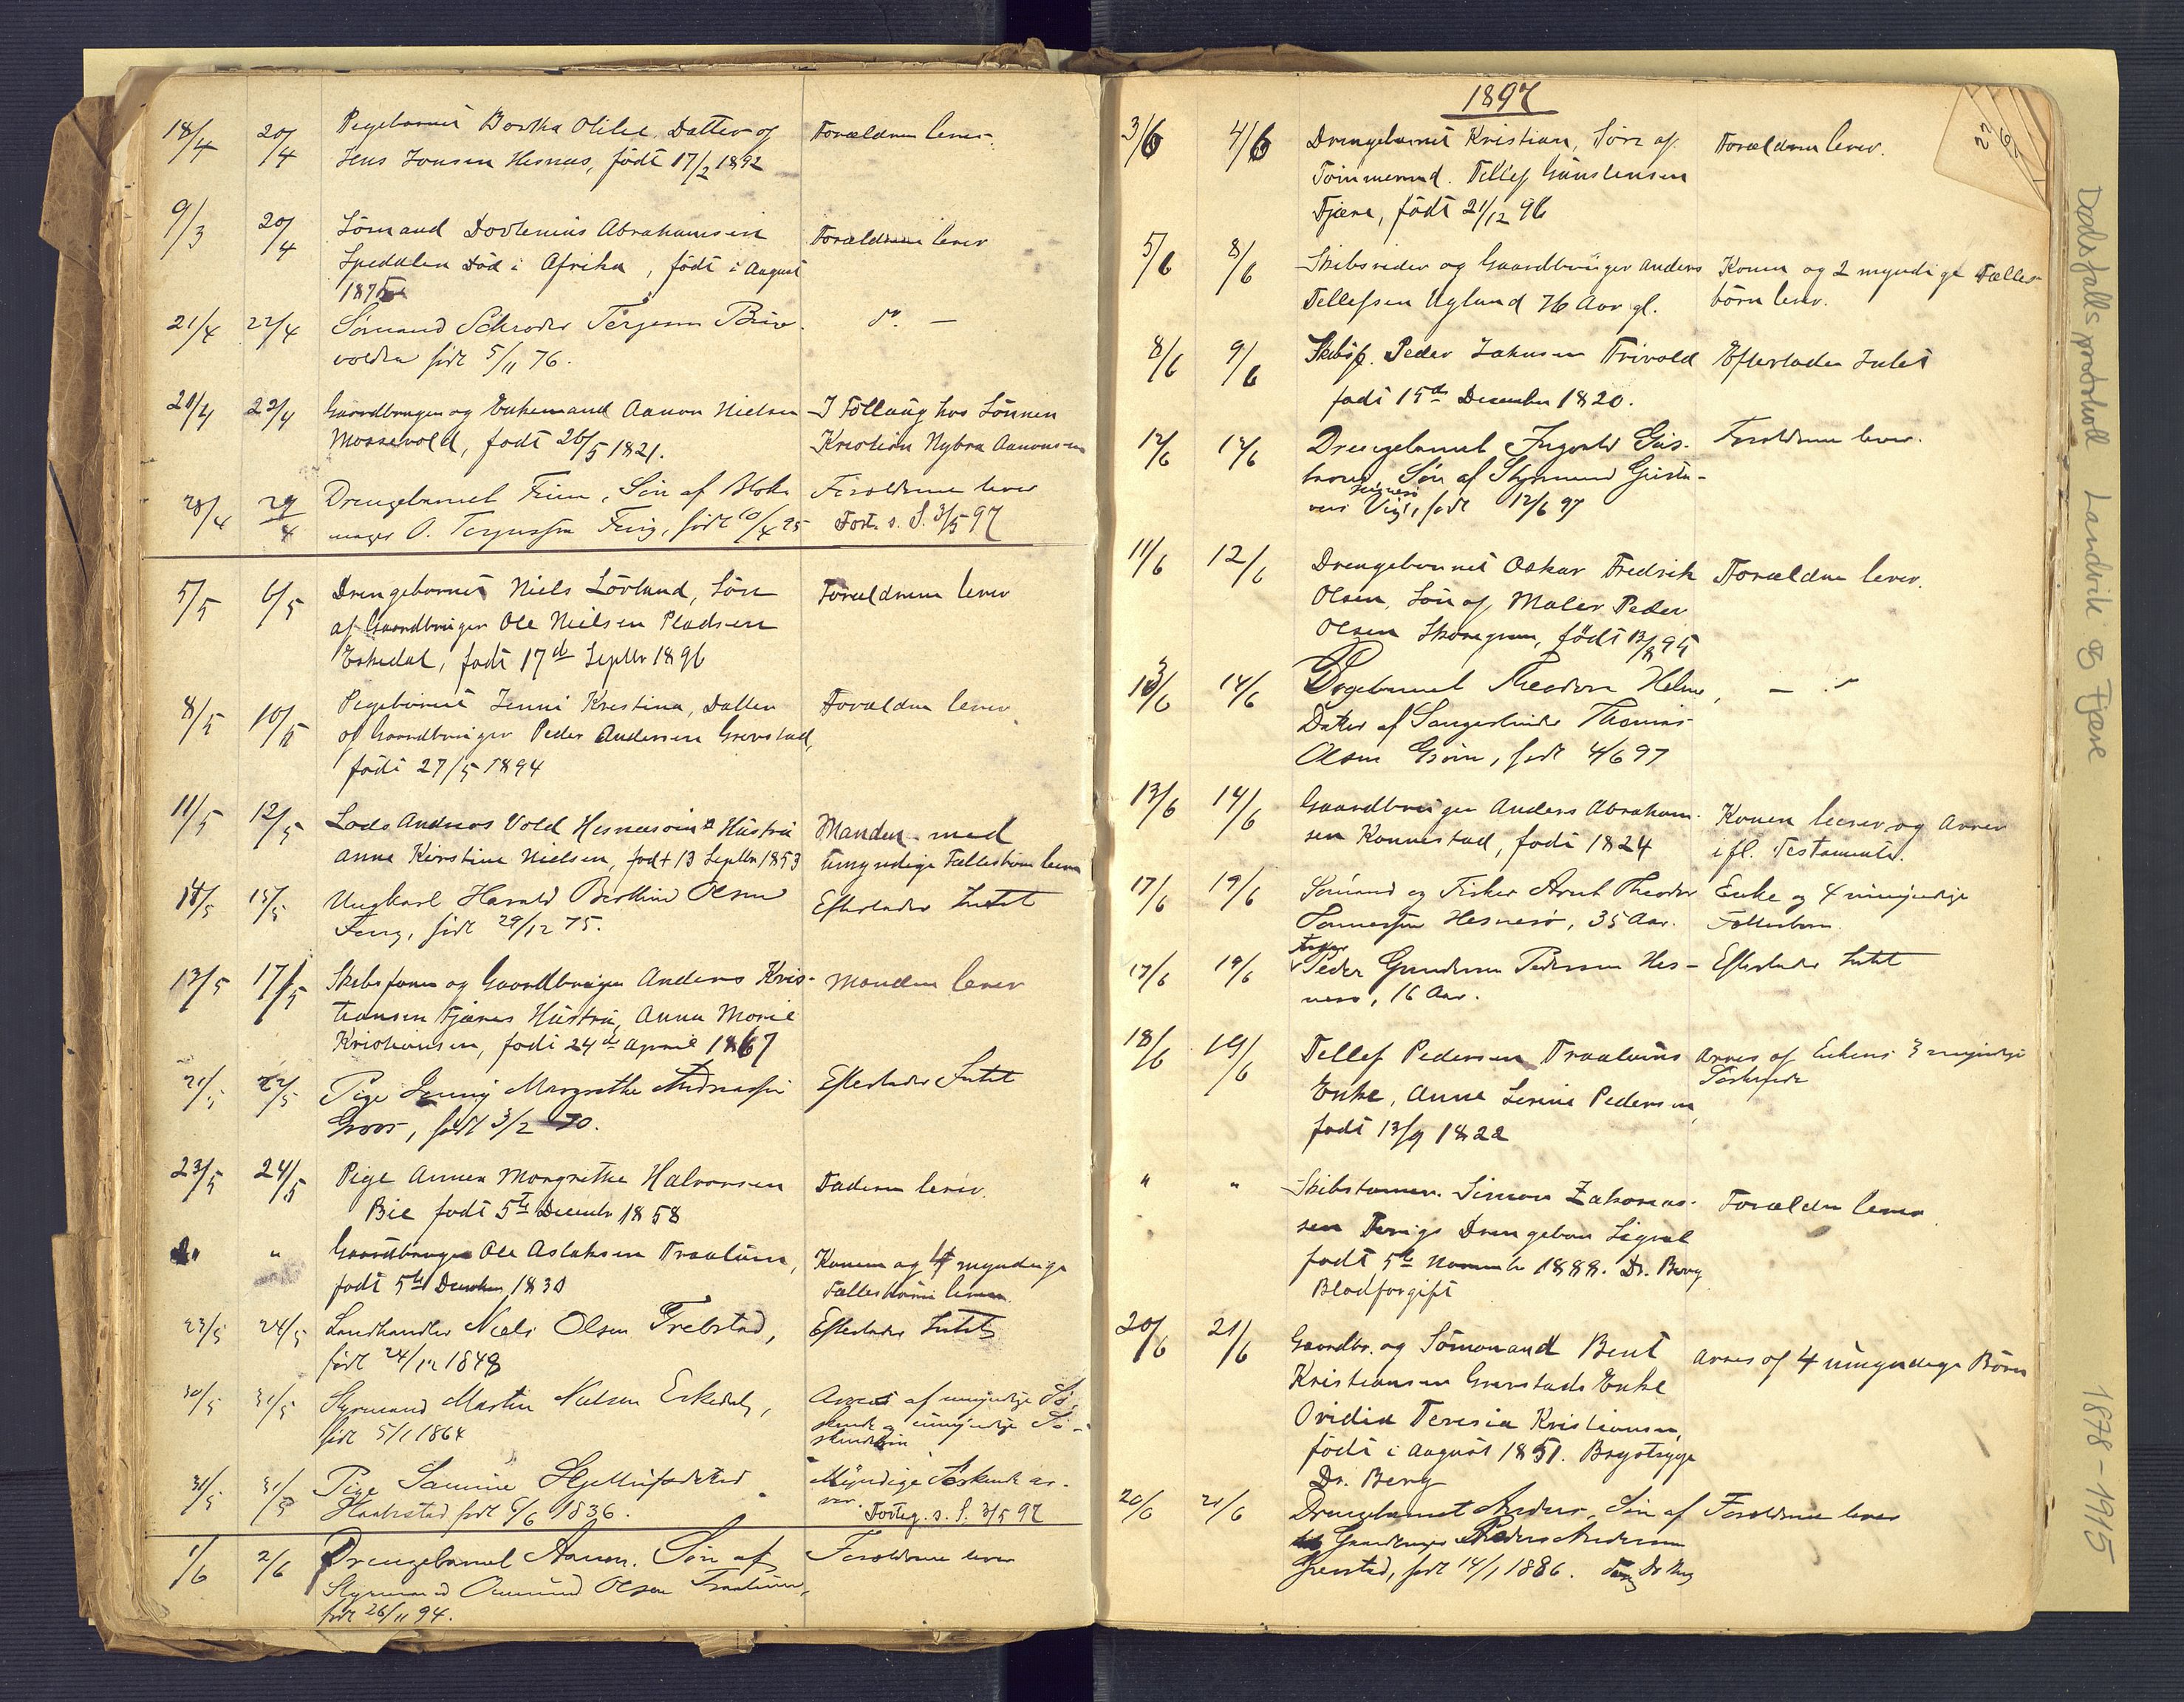 18/4 20/4 Pigebarnet Bertha Otilie Datter af Forældrene lever.
Jens Jensen Hesnæs, født 17/2 1892
9/3 20/4 Sömand Dovlenius Abrahamsen Forældrene lever
Spedalen Död i Afrika, födt i August
1875
21/4 22/4 Sömand Schrøder Terjesen Brive- do. —
volden født 5/11 76.
21/4 22/4 Gaardbruger og Enkemand Aanon Nielsen I Föllaug hos Sönnen
Mossevold, født 26/5 1821. Kristian Nybra Aanonsen
28/4 29/4 Drengebarnet Finn, Søn af Blok- Forældrene lever
mager O. Terjussen Fevig, født 10/4 95 Fort. s. S. 3/5 97
5/5 6/5 Drengebarnet Niels Lövlund, Sön Forældrene lever
af Gaardbruger Ole Nielsen Pladsen
Eskedal, født 17de Septbr 1896
8/5 10/5 Pigebarnet Jenni Kristina, Datter Forældrene lever
af Gaardbruger Peder Andersen Grevstad,
födt 27/5 1894
11/5 12/5 Lods Andreas Vold Hesnæsöens Hüstrü Manden med
Anne Kirstine Nielsen, født 13 Septbr 1853 umyndige Fællesbörn lever
14/5 15/5 Ungkarl Harald Berthin Olsen Efterlader Intet
Fevig, født 29/12 75.
13/5 17/5 Skibsförer og Gaardbruger Anders Kris- Manden lever
tiansen Fjæres Hüstrü, Anna Marie
Kristiansen, født 24de April 1867
21/5 22/5 Pige Jenny Margrethe Andreassen Efterlader Intet
Groos, født 3/2 70.
23/5 24/5 Pige Annea Margrethe Halvorsen Faderen lever.
Bie født 5te Decembr 1858
" " Gaardbruger Ole Aslaksen Traalüm, Konen og 4 myndige
født 5te December 1830 Fællesbörn lever
23/5 24/5 Landhandler Niels Olsen Frebstad, Efterlader Intet
født 24/12 1848
30/5 31/5 Styrmand Martin Nielsen Eskedal, Arves af myndige Sö-
født 5/1 1864 skende og umyndige Sö-
skendebørn
31/5 31/5 Pige Samine Myndige Søskende ar-
Haabestad født 6/6 1836. ver. Forteg. s. S. 3/5 97
1/6 2/6 Drengebarnet Aanon. Søn af Forældrene lever
Styrmand Ommund Olsen Traalüm,
født 26/11 94.
1897
3/6 4/6 Drengebarnet Kristian, Søn af Forældrene lever.
Tömmermd. Tellef Gunstensen
Fjære, født 21/12 96
5/6 8/6 Skibsreder og Gaardbruger Anders Konen og 2 myndige Fælles-
Tellefsen Uglund 76 Aar gl. börn lever.
8/6 9/6 Skibsf. Peder Jakusen Trivold Efterlader Intet
født 15de December 1820.
12/6 12/6 Drengebarnet Ingvald Gus- Forældrene lever.
tavsen Søn af Styrmand Gusta-
vus Vig, født 12/6 97
11/6 12/6 Drengebarnet Oskar Fredrik Forældrene lever.
Olsen, Sön af Maler Peder
Olsen Skaregrøm, födt 13/8 95
13/6 14/6 Pigebarnet Theodora Helme, — do
Datter af Sangerlærer Thomas
Olsen Grøm, født 4/6 97
13/6 14/6 Gaardbruger Anders Abraham- Konen lever og Arver
sen Kannestad, födt 1824 ifl. Testamente.
17/6 19/6 Sömand og Fisker Arnt Theodor Enke og 4 umyndige
Tønnessen Hesnesø, 35 Aar. Fællesbørn.
17/6 19/6 Peder Gundersen Pedersen Hes- Efterlader Intet
nesø, 16 Aar.
18/6 19/6 Tellef Pedersen Traalums Arves af Enkens 3 myndige
Enke, Anne Serine Pedersen, Søskende
født 13/9 1822
" " Skibstømrm. Simon Zakarias- Forældre lever
sen Fevigs Drengebarn Sigval
født 5te November 1888. Dr. Berg
Blodforgift
20/6 21/6 Gaardbr. og Sömand Bent Arves af 4 umyndige Börn
Kristiansen Grevstads Enke
Ovidia Teresia Kristiansen,
födt i August 1851. Brystsyge
Dr. Berg
20/6 21/6 Drengebarnet Anders, Søn af Forældrene lever
Gaardbruger Peder Andersen
Grevstad, født 14/1 1886.
Dødsfallsprotokoll Landvik og Fjære 1878-1915